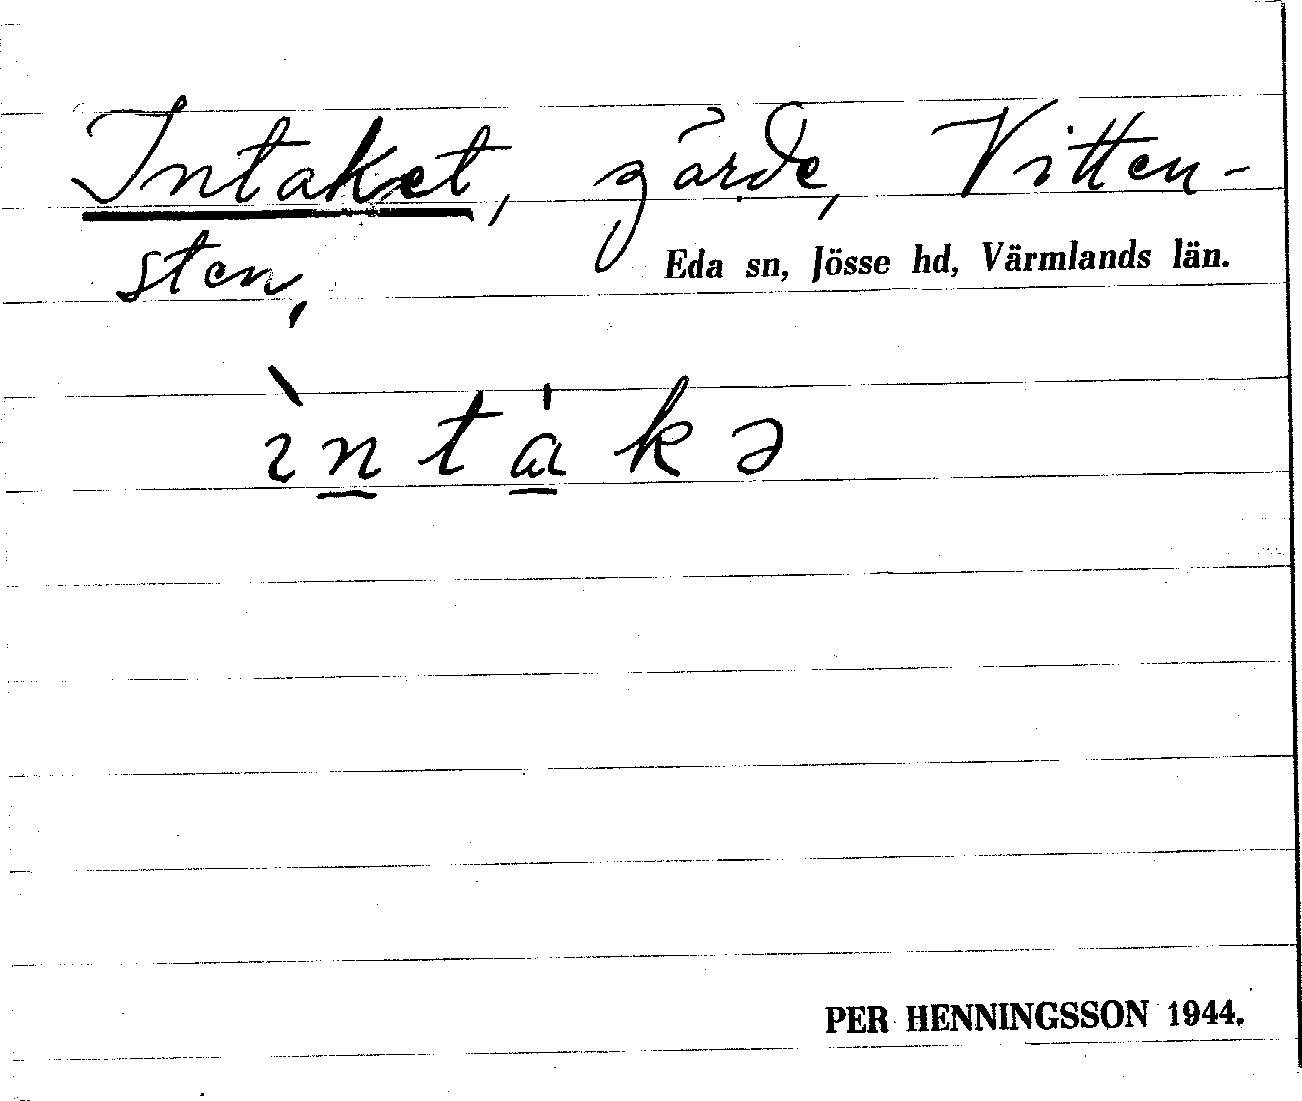 Intaket, gärde, Vitten-
sten,
Eda sn, Jösse hd, Värmlands län.
ìn̲ta̲̍kə
PER HENNINGSSON 1944.